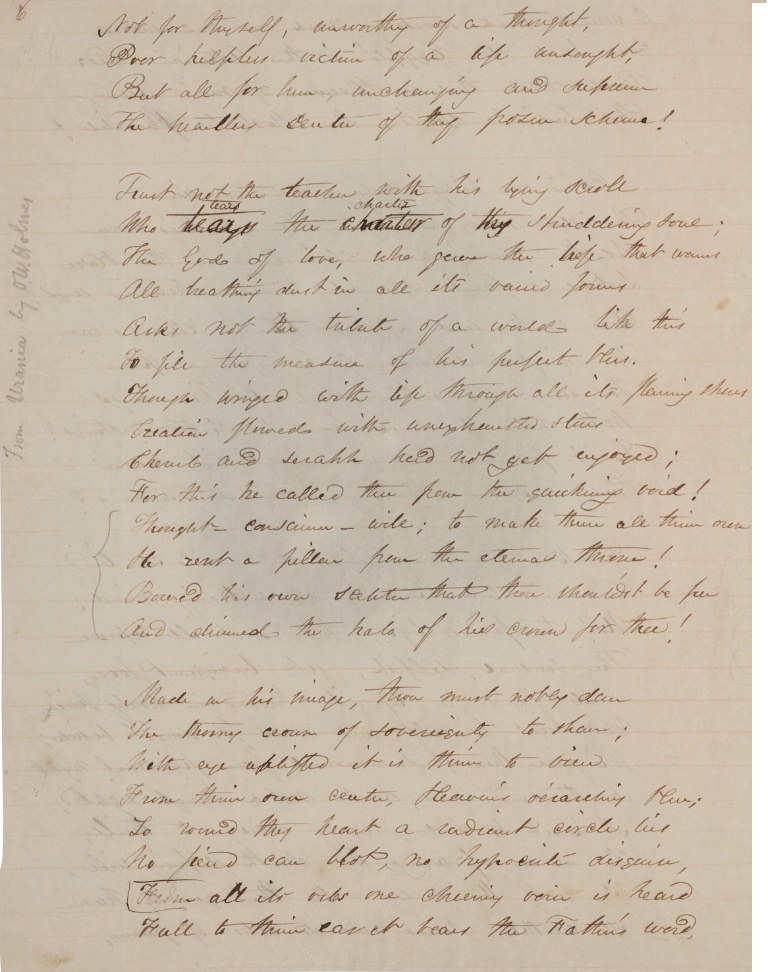 6
Not for thyself, unworthy of a thought,
Poor helpless victim of a life unsought,
But all for him, unchanging and supreme
The heartless centre of thy frozen scheme!
Trust not the teacher with his lying scroll
tears charter
Who tears the charter of thy shuddering soul;
The God of love, who gave the life that warms
All breathing dust in all its varied forms
Asks not the tribute of a world like this
To fill the measure of his perfect bliss.
Though winged with life through all its flaming shores
Creation flowed with unexhausted stores
Cherub and seraph had not yet enjoyed;
For this he called thee from the quickening void!
Thought – conscience – will; to make them all thine own
He rent a pillar from the eternal throne!
Bowed his own sceptre that thou shouldst be free
And dimmed the halo of his crown for thee!
Made in his image, thou must nobly dare
The thorny crown of sovereignty to share;
With eye uplifted it is thine to view
From thine own centre, Heaven's o'erarching blue;
So round thy heart a radiant circle lies
No fiend can blot, no hypocrite disguise,
From all its orbs one cheering voice is heard
Full to thine ear it bears the Father's word,
From Urania by O.W. Holmes